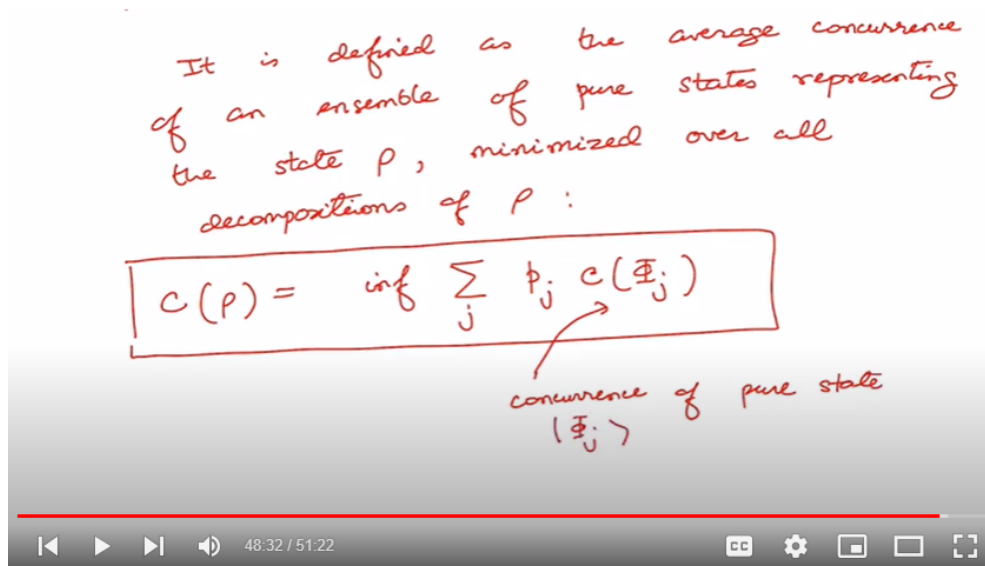 It is defined as the average concurrence
of an ensemble of pure states representing
the state ρ, minimized over all
decompositions of ρ :
C(ρ) = inf ∑_j p_j C(Φ_j)
concurrence of pure state
|Φ_j⟩
48:32 / 51:22
CC